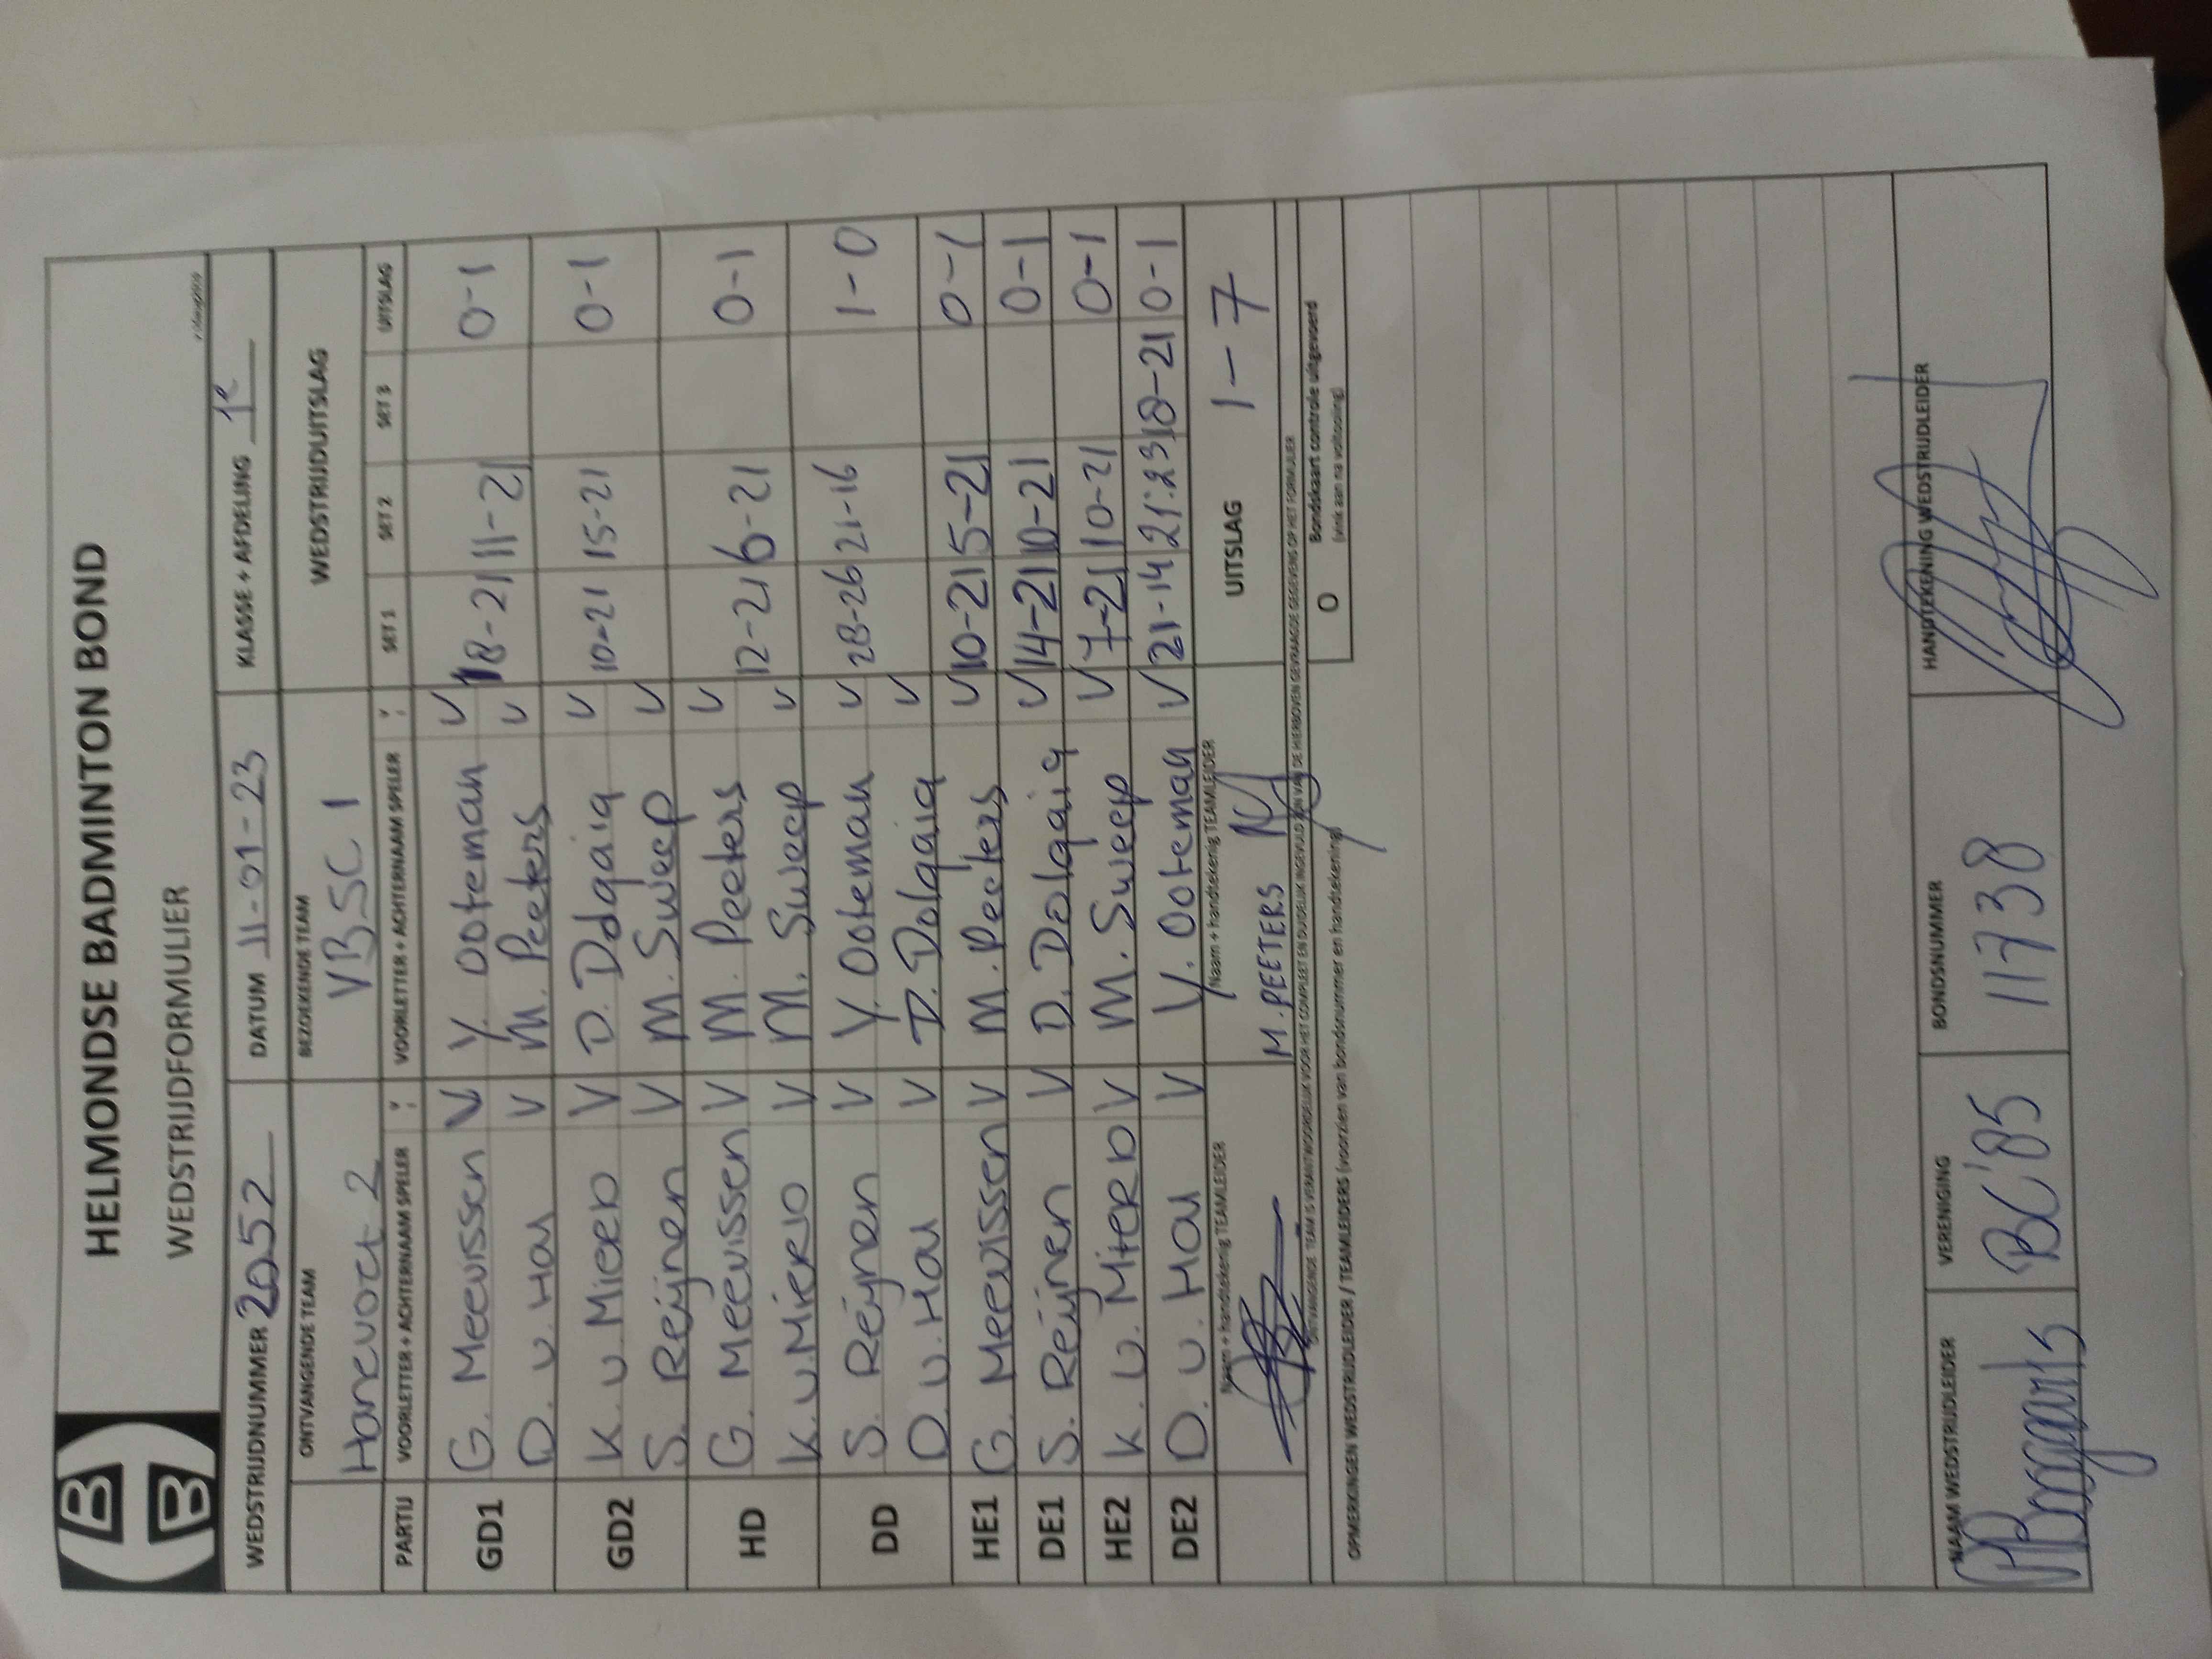 HELMONDSE BADMINTON BOND
WEDSTRIJDFORMULIER
WEDSTRIJDNUMMER 2052 DATUM 11-01-23 KLASSE + AFDELING 1e
ONTVANGENDE TEAM BEZOEKENDE TEAM WEDSTRIJDUITSLAG
Hazevoet 2 VBSC 1
PARTIJ VOORLETTER + ACHTERNAAM SPELER VOORLETTER + ACHTERNAAM SPELER SET 1 SET 2 SET 3 UITSLAG
GD1 G. Meevissen V Y. Ooteman V 18-21 11-21 0-1
D. v. Hou V M. Peeters V
GD2 K. v. Mierlo V D. Dolgaia V 10-21 15-21 0-1
S. Reijnen V M. Sweep V
HD G. Meevissen V M. Peeters V 12-21 6-21 0-1
K. v. Mierlo V M. Sweep V
DD S. Reijnen V Y. Ooteman V 28-26 21-16 1-0
D. v. Hou V D. Dolgaia V
HE1 G. Meevissen V M. Peeters V 10-21 5-21 0-1
DE1 S. Reijnen V D. Dolgaia V 14-21 10-21 0-1
HE2 K. v. Mierlo V M. Sweep V 7-21 10-21 0-1
DE2 D. v. Hou V Y. Ooteman V 21-14 21-23 18-21 0-1
Naam + handtekenig TEAMLEIDER Naam + handtekenig TEAMLEIDER UITSLAG 1-7
M. PEETERS
ONTVANGENDE TEAM IS VERANTWOORDELIJK VOOR HET COMPLEET EN DUIDELIJK INGEVULD ZIJN VAN DE HIERBOVEN GEVRAAGDE GEGEVENS OP HET FORMULIER
O Bondskaart controle uitgevoerd
(vink aan na voltooiing)
OPMERKINGEN WEDSTRIJDLEIDER / TEAMLEIDERS (voorzien van bondsnummer en handtekening)
NAAM WEDSTRIJDLEIDER VERENIGING BONDSNUMMER HANDTEKENING WEDSTRIJDLEIDER
BC'85 11738